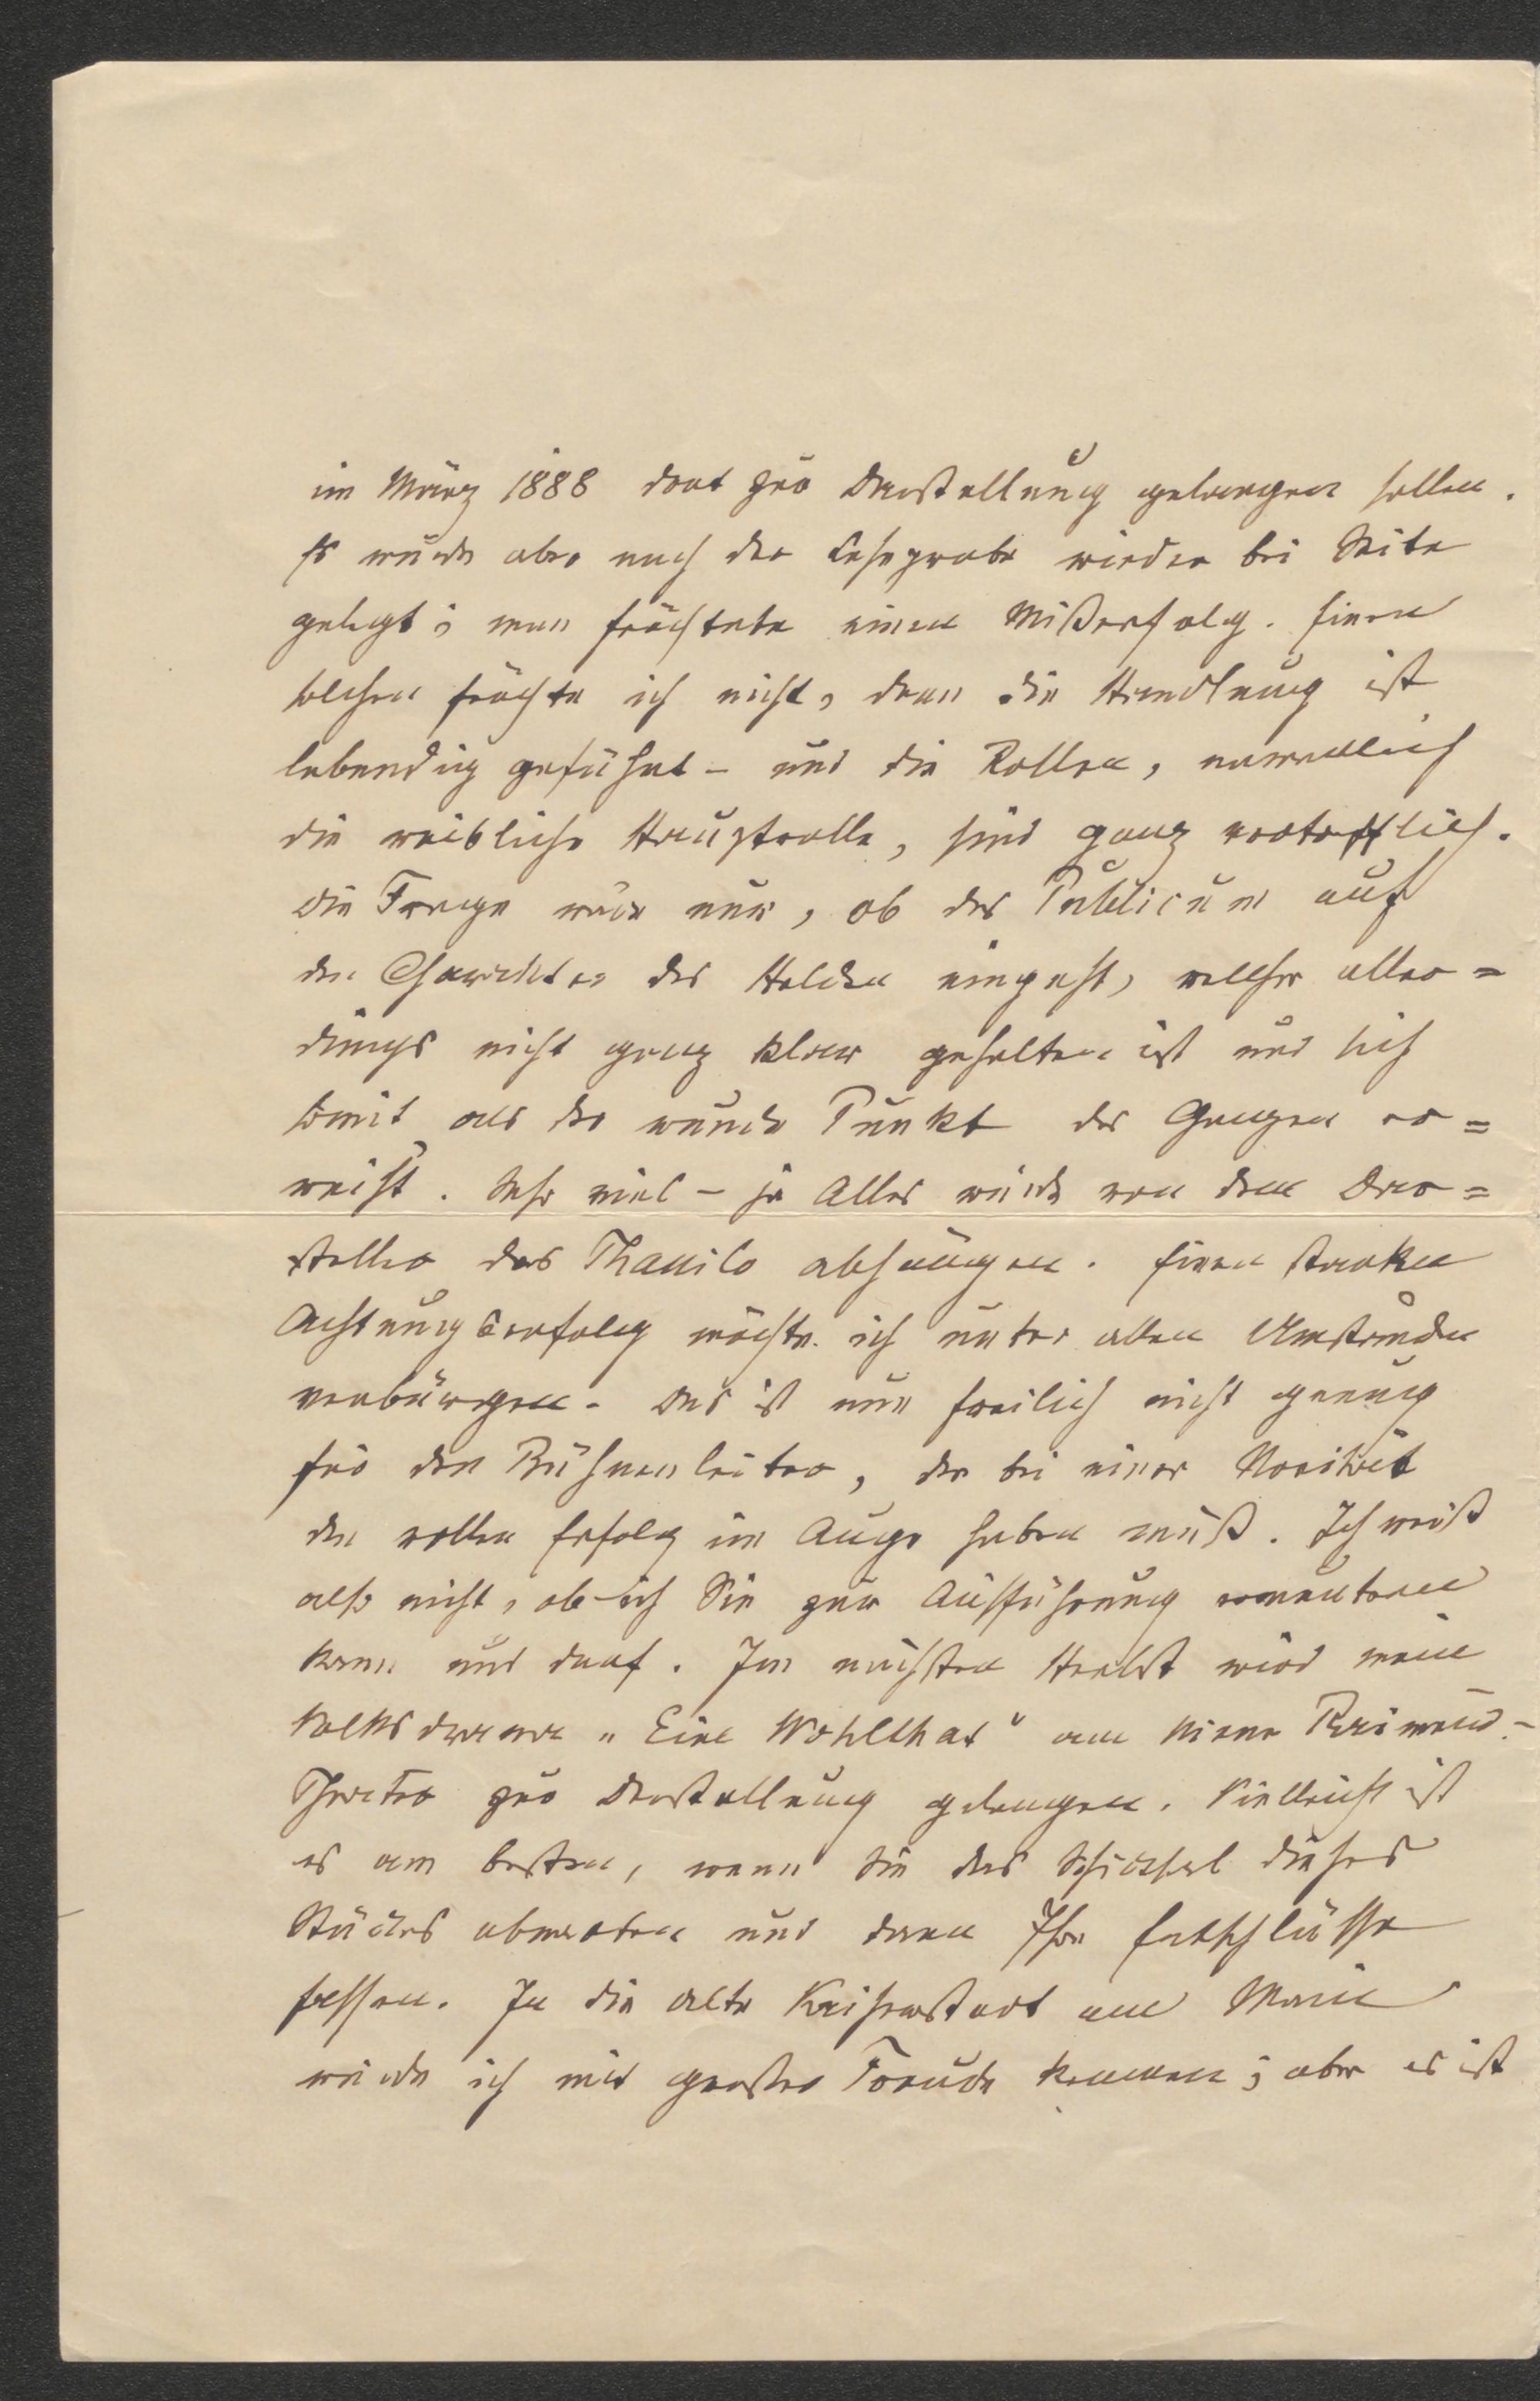 im März 1888 dort zur Darstellung gelangen sollen.
Es wurde aber nach der Leseprobe wieder bei Seite
gelegt; man fürchtete einen Mißerfolg. Einen
solchen fürchte ich nicht, denn die Handlung ist
lebendig geführt – und die Rollen, namentlich
die weibliche Hauptrolle, sind ganz vortrefflich.
Die Frage wäre nur, ob das Publicum auf
den Charakter des Helden eingeht, welcher aller=
dings nicht ganz klar gehalten ist und sich
somit als der wunde Punkt des Ganzen er=
weist. Sehr viel – ja Alles würde von dem Dar=
steller des Thassilo abhängen. Einen starken
Achtungserfolg möchte ich unter allen Umständen
verbürgen. Das ist nun freilich nicht genug
für den Bühnenleiter, der bei einer Novität
den vollen Erfolg im Auge haben muß. Ich weiß
also nicht, ob ich Sie zur Aufführung ermuntern
kann und darf. Im nächsten Herbst wird mein
Volksdrama „Eine Wohlthat" am Wiener Raimund-
Theater zur Darstellung gelangen. Vielleicht ist
es am besten, wenn Sie das Schicksal dieses
Stückes abwarten und dann Ihre Entschlüsse
fassen. In die alte Kaiserstadt am Main
würde ich mit großer Freude kommen; aber es ist